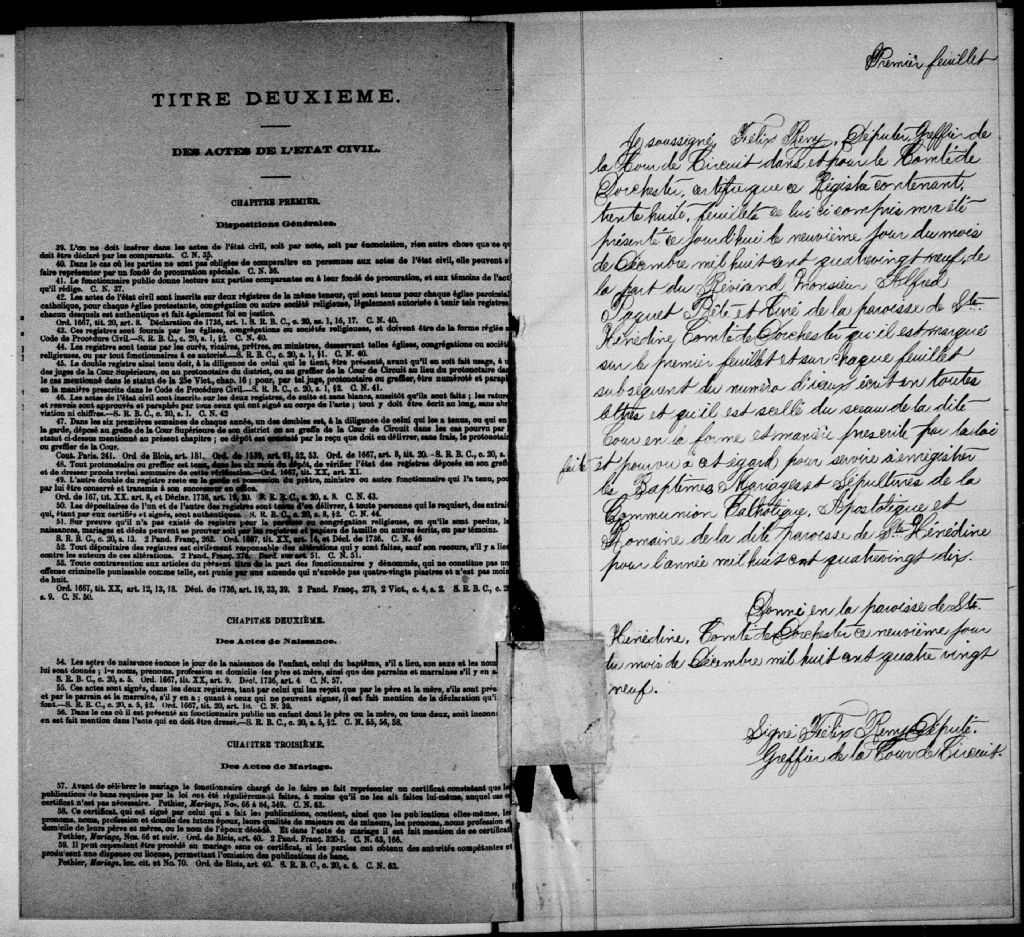 TITRE DEUXIEME.
DES ACTES DE L'ETAT CIVIL.
CHAPITRE PREMIER.
Dispositions Générales.
39. L'on ne doit insérer dans les actes de l'état civil, soit par note, soit par énonciation, rien autre chose que ce qu
doit être déclaré par les comparants. C. N. 35.
40. Dans le cas où les parties ne sont pas obligées de comparaître en personnes aux actes de l'état civil, elles peuvent s
faire représenter par un fondé de procuration spéciale. C. N. 36.
41. Le fonctionnaire public donne lecture aux parties comparantes ou à leur fondé de procuration, et aux témoins de l'act
qu'il rédige. C. N. 37.
42. Les actes de l'état civil sont inscrits sur deux registres de la même teneur, qui sont tenus pour chaque église paroissial
catholique, pour chaque église protestante, congrégation ou autre société religieuse, légalement autorisés à tenir tels registres
chacun desquels est authentique et fait également foi en justice.
Ord. 1667, tit. 20, art. 8. Déclaration de 1736, art. 1. S. R. B. C., c. 20, ss. 1, 16, 17. C. N. 40.
43. Ces registres sont fournis par les églises, congrégations ou sociétés religieuses, et doivent être de la forme réglée a
Code de Procédure Civil.—S. R. B. C., c. 20, s. 1, §2. C. N. 40.
44. Les registres sont tenus par les curés, vicaires, prêtres, ou ministres, desservant telles églises, congrégations ou société
religieuses, ou par tout fonctionnaire à ce autorisé.—S. R. B. C., c. 20, s. 1, §1. C. N. 40.
45. Le double registre ainsi tenu doit, à la diligence de celui qui le tient, être présenté, avant qu'il en soit fait usage, à u
des juges de la Cour Supérieure, ou au protonotaire du district, ou au greffier de la Cour de Circuit au lieu du protonotaire dan
le cas mentionné dans le statut de la 25e Vict., chap. 16; pour, par tel juge, protonotaire ou greffier, être numéroté et paraph
en la manière prescrite dans le Code de Procédure Civil.—S. R. B. C., c. 20, s. 1, §2. C. N. 41.
46. Les actes de l'état civil sont inscrits sur les deux registres, de suite et sans blancs, aussitôt qu'ils sont faits; les rature
et renvois sont approuvés et paraphés par tous ceux qui ont signé au corps de l'acte; tout y doit être écrit au long, sans abr
viation ni chiffres.—S. R. B. C., c. 20, s. 1. C. N. 42
47. Dans les six premières semaines de chaque année, un des doubles est, à la diligence de celui qui les a tenus, ou qui en
la garde, déposé au greffe de la Cour Supérieure de son district ou au greffe de la Cour de Circuit dans les cas pourvu par
statut ci-dessus mentionné au présent chapitre; ce dépôt est constaté par le reçu que doit en délivrer, sans frais, le protonotai
ou greffier de la Cour.
Cout. Paris. 241. Ord. de Blois, art. 181. Ord. de 1539, art. 51, 52, 53. Ord. 1667, art. 8, tit. 20.—S. R. B. C., c. 20, s.
48. Tout protonotaire ou greffier est tenu, dans les six mois du dépôt, de vérifier l'état des registres déposés en son gref
et de dresser procès verbal sommaire de cette vérification.—Ord. 1667, tit. XX, art. XI.
49. L'autre double du registre reste en la garde et possession du prêtre, ministre ou autre fonctionnaire qui l'a tenu, pou
par lui être conservé et transmis à son successeur en office.
Ord. de 167, tit. XX. art. 8, et Déclar. 1736, art. 19, 20. S. R. B. C., c. 20, s. 8. C. N. 43.
50. Les dépositaires de l'un et de l'autre des registres sont tenus d'en délivrer, à toute personne qui le requiert, des extrai
qui, étant par eux certifiés et signés, sont authentiques. S. R. B. C., c. 20, s. 8, §2. C. N. 44.
51. Sur preuve qu'il n'a pas existé de registre pour la paroisse ou congrégation religieuse, ou qu'ils sont perdus, le
naissances, mariages et décès peuvent se prouver soit par les registres et papiers de famille ou autres écrits, ou par témoins.
S. R. B. C., c. 20, s. 13. 2 Pand. Franç., 263. Ord. 1667, tit. XX, art. 14, et Décl. de 1736. C. N. 46
52. Tout dépositaire des registres est civilement responsable des altérations qui y sont faites, sauf son recours, s'il y a lie
contre les auteurs de ces altérations. 2 Pand. Franç. 278. Dard. sur art. 51. C. N. 51.
53. Toute contravention aux articles du présent titre de la part des fonctionnaires y dénommés, qui ne constitue pas un
offense criminelle punissable comme telle, est punie par une amende qui n'excède pas quatre-vingts piastres et n'est pas moin
de huit.
Ord. 1667, tit. XX, art. 12, 13, 18. Décl. de 1736, art. 19, 33, 39. 2 Pand. Franç., 278, 2 Vict., c. 4, s. 2. S. R. B. C., c. 2
s. 9. C. N. 50.
CHAPITRE DEUXIÈME.
Des Actes de Naissance.
54. Les actes de naissance énonce le jour de la naissance de l'enfant, celui du baptême, s'il a lieu, son sexe et les nom
lui sont donnés; les noms, prénoms, profession et domicile des père et mère, ainsi que des parrains et marraines s'il y en a.
S. R. B. C., c. 20, s. 5. Ord. 1667, tit. XX, art. 9. Décl. 1736, art. 4 C. N. 57.
55. Ces actes sont signés, dans les deux registres, tant par celui qui les reçoit que par le père et la mère, s'ils sont prés
et par le parrain et la marraine, s'il y en a; quant à ceux qui ne peuvent signer, il est fait mention de la déclaration qu'i
font.—S. R. B. C., c. 20, s. 5, §2. Ord. 1667, tit. 20, art. 10. C. N. 39.
56. Dans le cas où il est présenté au fonctionnaire public un enfant dont le père ou la mère, ou tous deux, sont inconn
en est fait mention dans l'acte qui en doit être dressé.—S. R. B. C., c. 20, s. 5, §2. C. N. 55, 56, 58.
CHAPITRE TROISIÈME.
Des Actes de Mariage.
57. Avant de célébrer le mariage le fonctionnaire chargé de le faire se fait représenter un certificat constatant que le
publications de bans requises par la loi ont été régulièrement faites, à moins qu'il ne les ait faites lui-même, auquel cas c
certificat n'est pas nécessaire. Pothier, Mariage, Nos. 66 & 84, 349. C. N. 63.
58. Ce certificat, qui est signé par celui qui a fait les publications, contient, ainsi que les publications elles-mêmes, les
prénoms, noms, profession et domile des futurs époux, leurs qualités de majeurs ou de mineurs, les prénoms, noms profession e
domicile de leurs pères et mères, ou le nom de l'époux décédé. Et dans l'acte de mariage il est fait mention de ce certificat
Pothier, Mariage, Nos. 66 et suiv. Ord. de Blois, art. 40. 2 Pand. Franç. 320-1. C. N. 63, 166.
59. Il peut cependant être procédé au mariage sans ce certificat, si les parties ont obtenu des autorités compétentes et
produisent une dispense ou license, permettant l'omission des publications de bans.
Pothier, Mariage, loc. cit. et No. 70. Ord. de Blois, art. 40. S. R. B. C., c. 20, s. 6. C. N. 63.
Premier feuillet
Je soussigné, Félix Remy, Député, Greffier de
la Cour de Circuit dans et pour le Comté de
Dorchester, certifie que ce Régistre contenant,
trente huit, feuillets ce lui ci compris m'a été
présenté ce jourd'hui le neuvième jour du mois
de Décembre mil huit cent quatrevingt neuf, de
la part du Révérand Monsieur Alfred
Paquet Prêtre et Curé de la paroisse de Ste.
Hénédine Comté de Dorchester qu'il est marqué
sur le premier feuillet et sur chaque feuillet
subséquent du numéro d'iceux écrit en toutes
lettres et qu'il est scellé du sceau de la dite
Cour en la forme et manière prescrite par la loi
faite et pourvu à cet égard, pour servir à enregistrer
les Baptêmes, Mariages et Sépultures de la
Communion Catholique, Apostolique et
Romaine de la dite paroisse de Ste Hénédine
pour l'année mil huit cent quatrevingt dix.
Donné en la paroisse de Ste.
Hénédine, Comté de Dorchester ce neuvième jour
du mois de Décembre mil huit cent quatre vingt
neuf.
Signé Félix Remy Député.
Greffier de la Cour de Circuit.